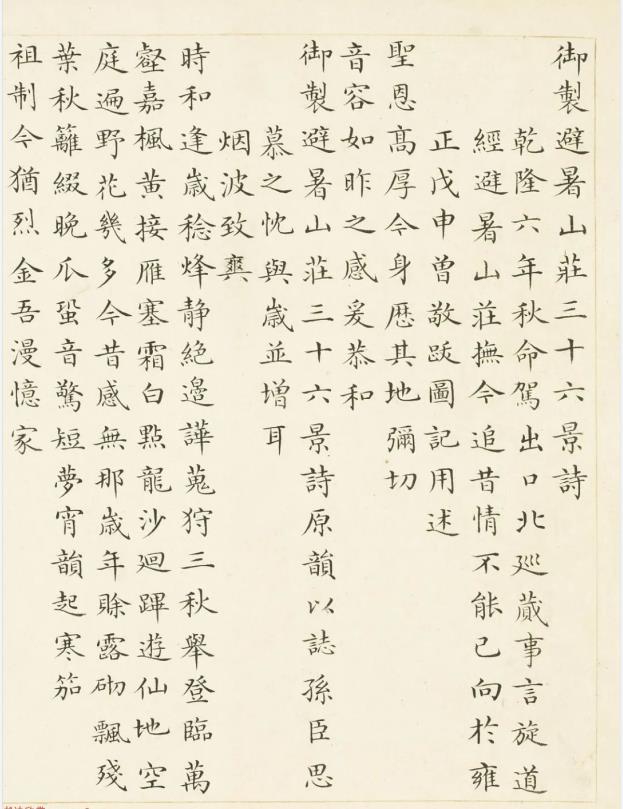 御製避暑山莊三十六景詩
乾隆六年秋命駕出口北巡蕆事言旋道
經避暑山莊撫今追昔情不能已向於雍
正戊申曾敬跋圖記用述
聖恩高厚今身歷其地彌切
音容如昨之感爰恭和
御製避暑山莊三十六景詩原韻以誌孫臣思
慕之忱與歲並增耳
烟波致爽
時和逢歲稔烽靜絶邊譁蒐狩三秋舉登臨萬
壑嘉楓黃接雁塞霜白點龍沙迴蹕遊仙地空
庭遍野花幾多今昔感無那歲年賒露砌飄殘
葉秋籬綴晚瓜蛩音驚短夢宵韻起寒笳
祖制今猶烈金吾漫憶家